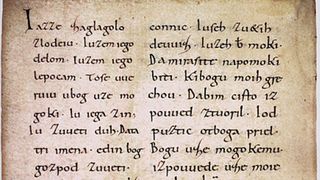 Iazze zaglagolo
zlodeiu · Iuzem iego
delom · Iuzem iego
lepocam · Tose uue
ruiu ubog uze mo
goki · Iu iega zin ·
Iu zuueti duh Data
tri imena · edin bog
gozpod zuueti ·
connic · Iuzeh zuetih
devuih · Iuzeh b moki ·
Da miraste napomoki
briti · Kibogu moih gre
chou · Dabim cisto iz
pouued ztuoril · Iod
puztic otboga priel ·
Bogu uze mogokemu
izpouuede uze moie